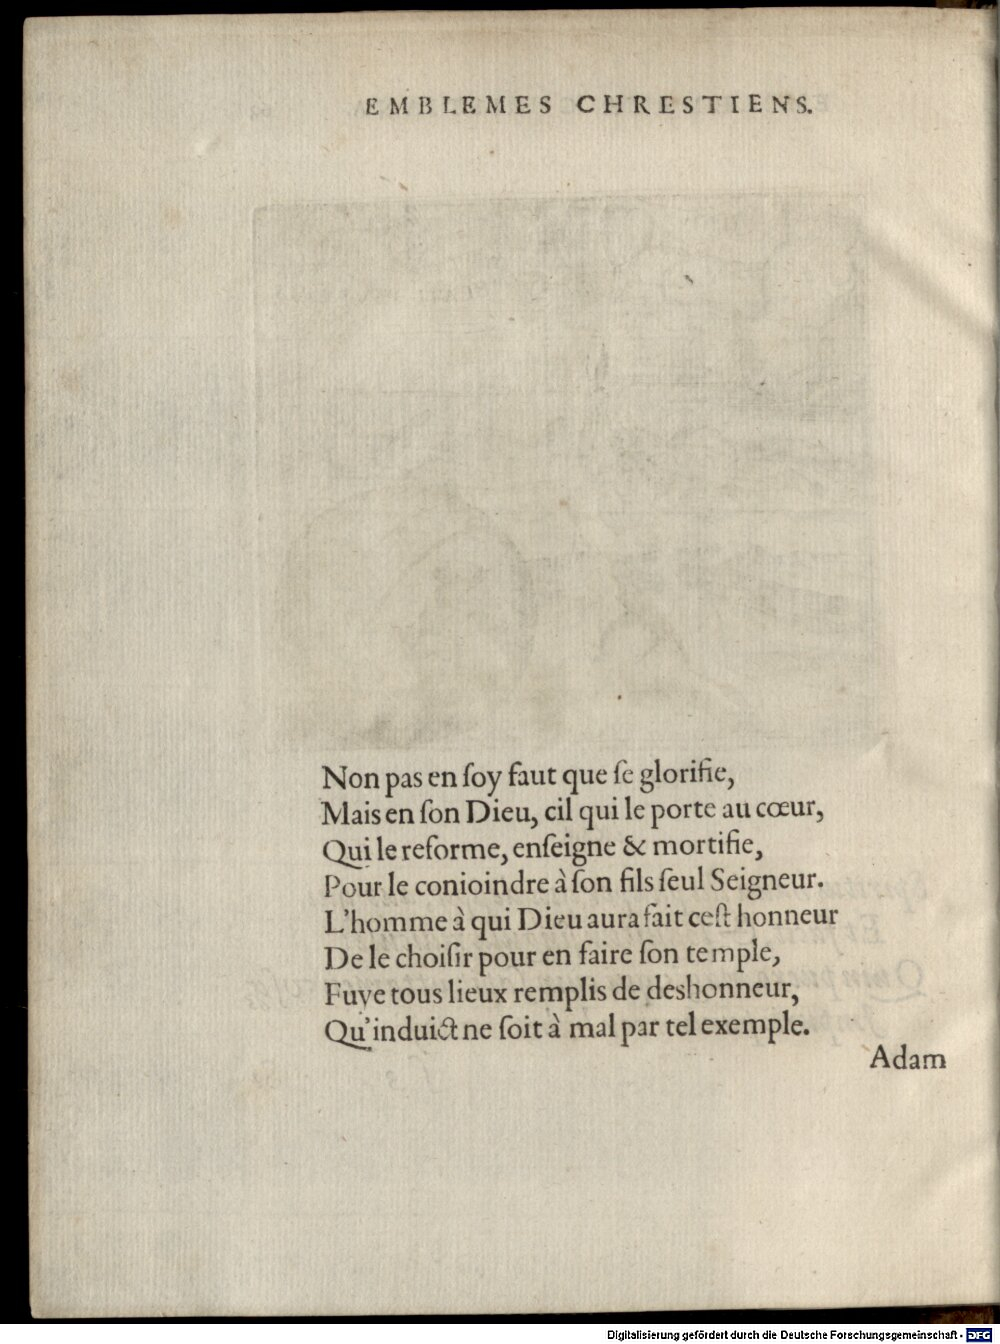 EMBLEMES CHRESTIENS.
Non pas en ſoy faut que ſe glorifie,
Mais en ſon Dieu, cil qui le porte au cœur,
Qui le reforme, enſeigne & mortifie,
Pour le conioindre à ſon fils ſeul Seigneur.
L'homme à qui Dieu aura fait ceſt honneur
De le choiſir pour en faire ſon temple,
Fuye tous lieux remplis de deshonneur,
Qu'induict ne ſoit à mal par tel exemple.
Adam
Digitalisierung gefördert durch die Deutsche Forschungsgemeinschaft - DFG